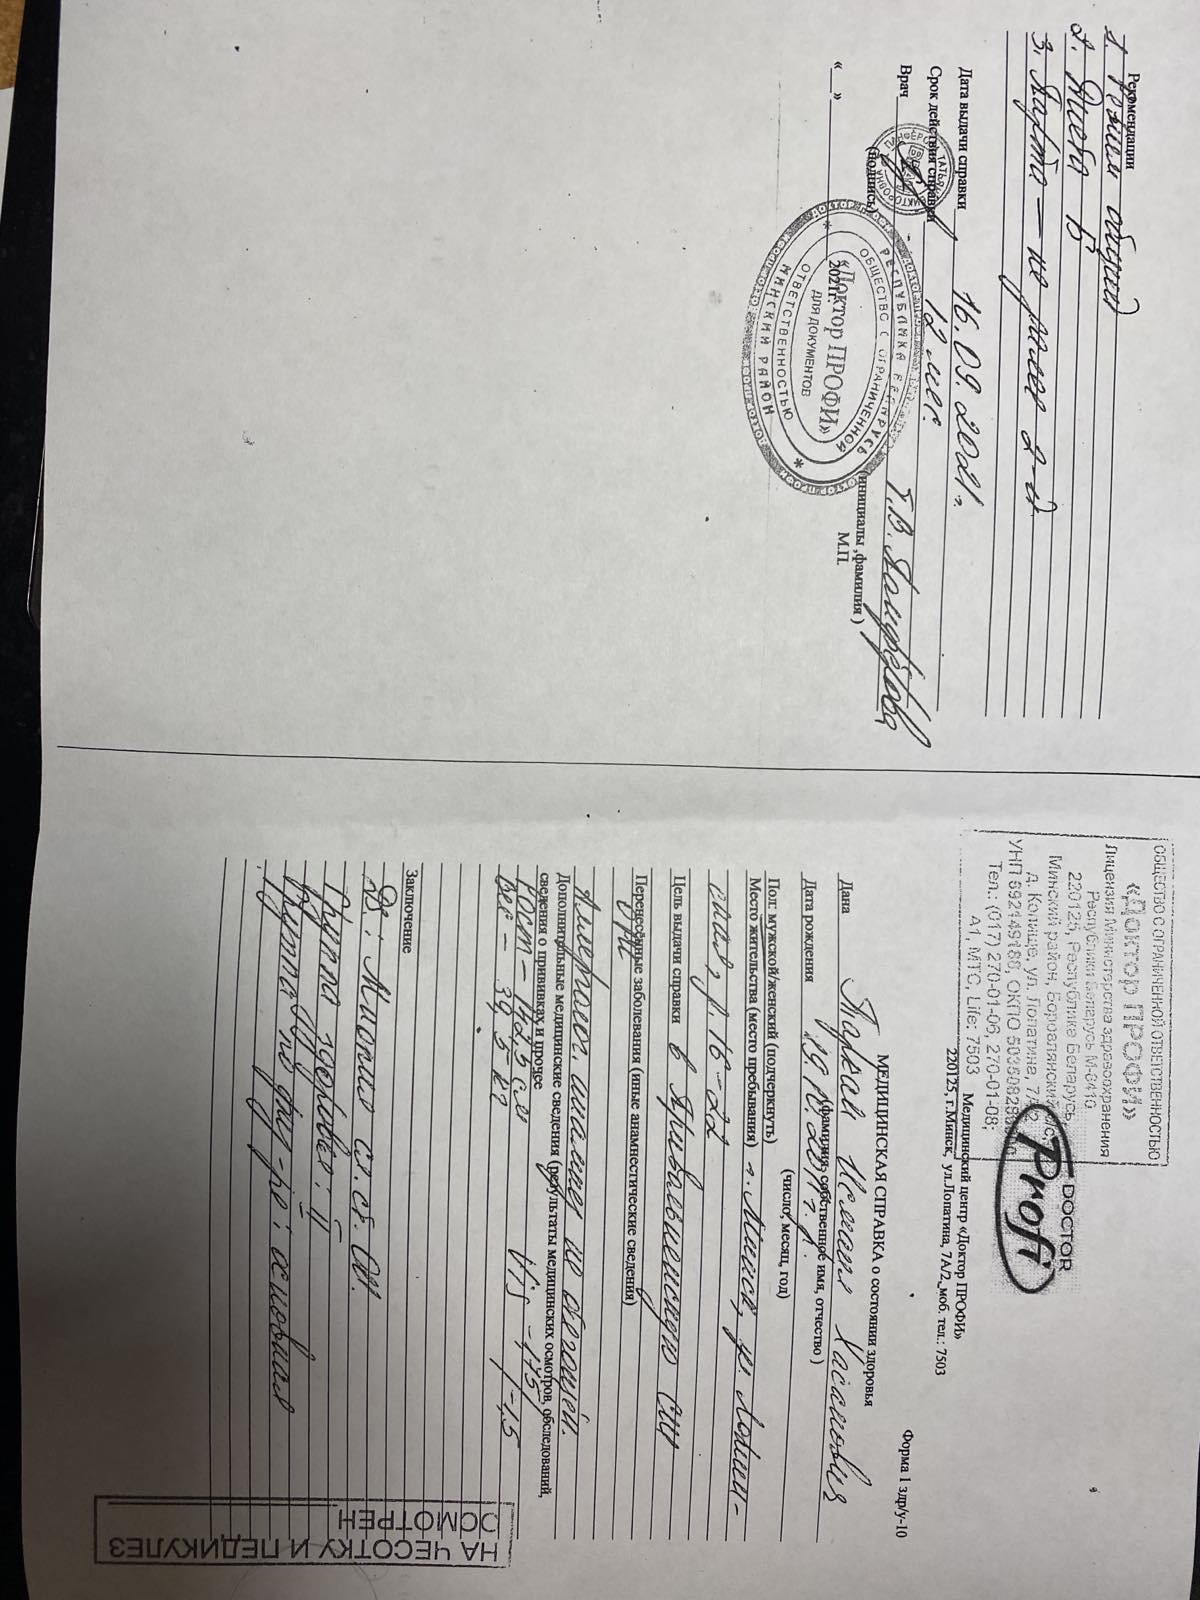 Рекомендации
1. Режим общий
2. Диета Б
3. Парта – не далее 2-й
Дата выдачи справки 16.09.2021г.
Срок действия справки 12 мес.
Врач Т.В.
(подпись) (инициалы ,фамилия )
« » 2021г. М.П.
РЕСПУБЛИКА БЕЛАРУСЬ
ОБЩЕСТВО С ОГРАНИЧЕННОЙ
ОТВЕТСТВЕННОСТЬЮ
МИНСКИЙ РАЙОН
«Доктор ПРОФИ»
ДЛЯ ДОКУМЕНТОВ
ОБЩЕСТВО С ОГРАНИЧЕННОЙ ОТВЕТСТВЕННОСТЬЮ
«Доктор ПРОФИ»
Лицензия Министерства здравоохранения
Республики Беларусь М-8410
220125, Республика Беларусь,
Минский район, Боровлянский с/с,
д. Копище, ул. Лопатина, 7А/2
УНП 692149186, ОКПО
Тел.: (017) 270-01-06, 270-01-08;
А1, МТС, Life: 7503
DOCTOR
Profi
Форма 1 здр/у-10
Медицинский центр «Доктор ПРОФИ»
220125, г.Минск, ул.Лопатина, 7А/2, моб. тел.: 7503
МЕДИЦИНСКАЯ СПРАВКА о состоянии здоровья
Дана Хасановия
(фамилия, собственное имя, отчество )
Дата рождения 2011 г.р.
(число, месяц, год)
Пол: мужской/женский (подчеркнуть)
Место жительства (место пребывания) г. Минск, ул. Лопати-
на, д. 16-22
Цель выдачи справки в
Перенесённые заболевания (иные анамнестические сведения)
Аллерголог. анамнез не отягощен.
Дополнительные медицинские сведения (результаты медицинских осмотров, обследований,
сведения о прививках и прочее
Рост – 142,5 см Vis -1,75
Вес – 39,5 кг -1,5
Заключение
Ds: Миопия сл. ст. OU.
Группа здоровья: II
Группа по физ-ре: основная
НА ЧЕСОТКУ И ПЕДИКУЛЕЗ
ОСМОТРЕН